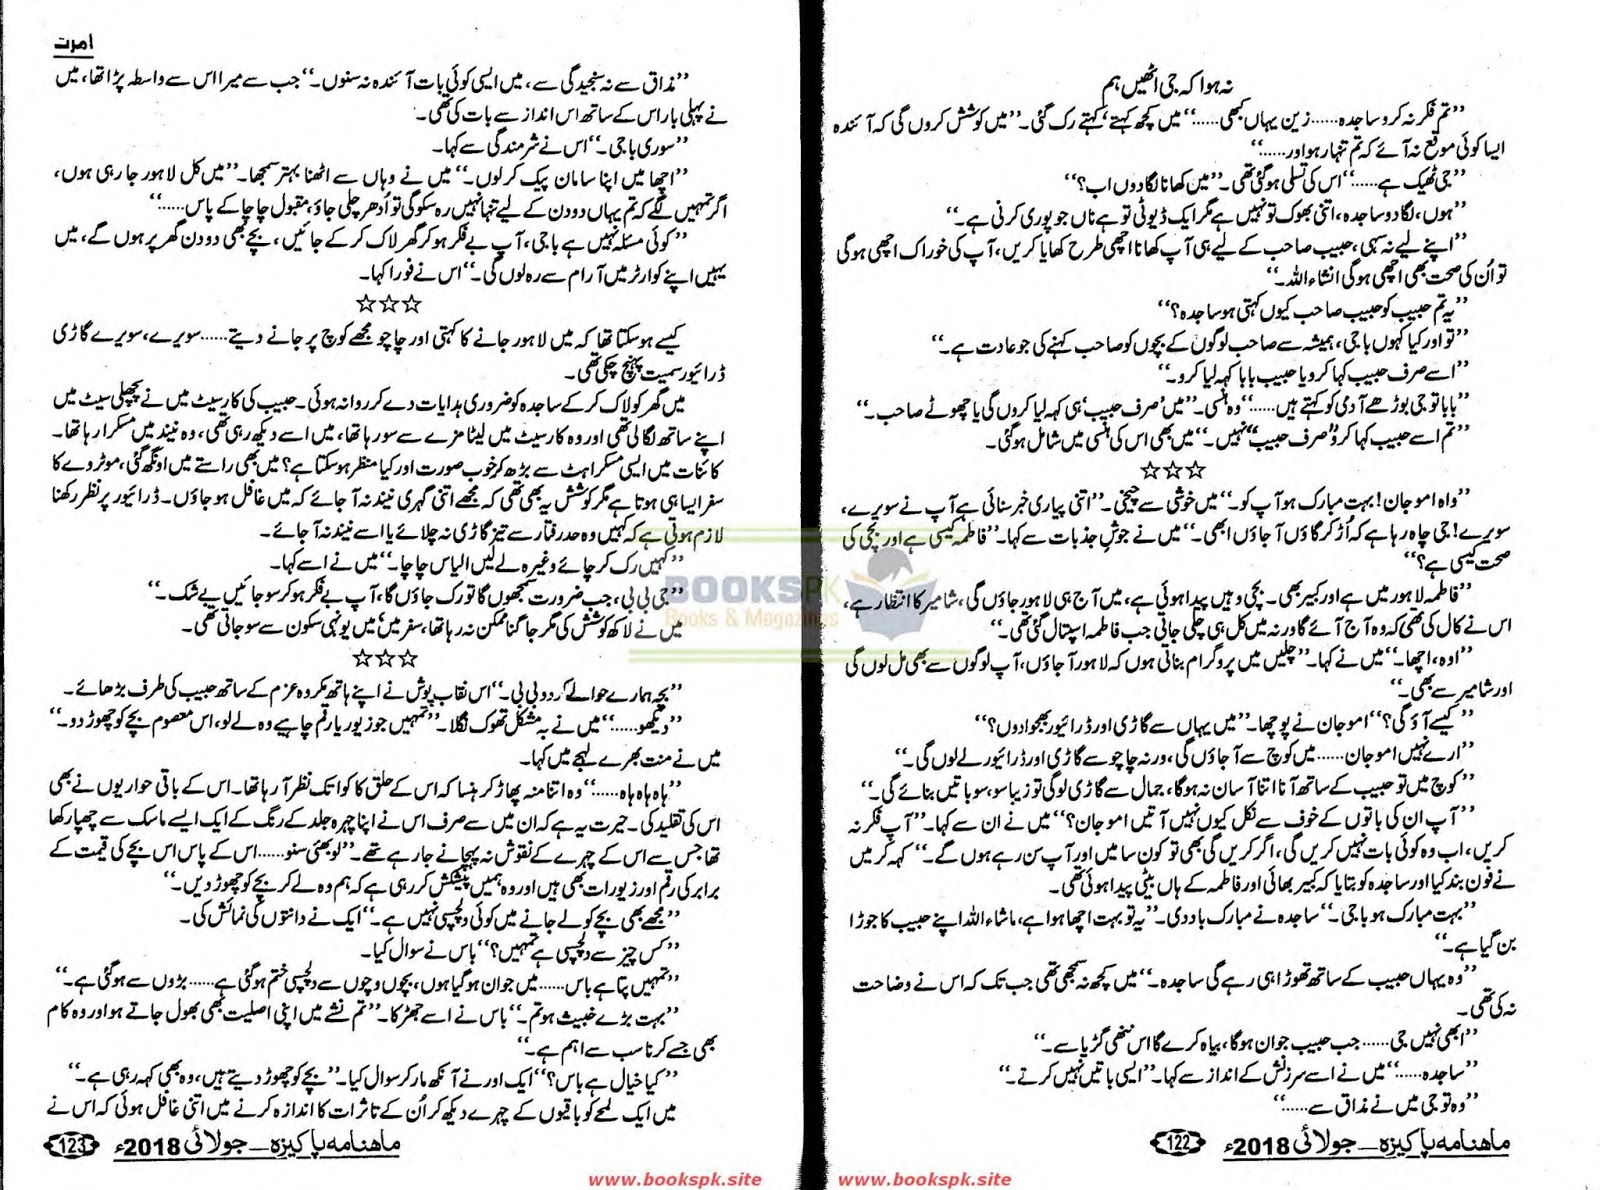 نہ ہوا کہ جی اٹھیں ہم
’’تم فکر نہ کرو ساجدہ...... زین یہاں کبھی......‘‘ میں کچھ کہتے، کہتے رک گئی۔ ’’میں کوشش کروں گی کہ آئندہ
ایسا کوئی موقع نہ آئے کہ تم تنہا رہو اور......‘‘
’’جی ٹھیک ہے......‘‘ اس کی تسلی ہو گئی تھی۔ ’’میں کھانا لگا دوں اب؟‘‘
’’ہوں، لگا دو ساجدہ، اتنی بھوک تو نہیں ہے مگر ایک ڈیوٹی تو ہے ناں جو پوری کرنی ہے۔‘‘
’’اپنے لیے نہ سہی، حبیب صاحب کے لیے ہی آپ کھانا اچھی طرح کھایا کریں، آپ کی خوراک اچھی ہوگی
تو اُن کی صحت بھی اچھی ہوگی انشاء اللہ۔‘‘
’’یہ تم حبیب کو حبیب صاحب کیوں کہتی ہو ساجدہ؟‘‘
’’تو اور کیا کہوں باجی، ہمیشہ سے صاحب لوگوں کے بچوں کو صاحب کہنے کی جو عادت ہے۔‘‘
’’اسے صرف حبیب کہا کرو یا حبیب بابا کہہ لیا کرو۔‘‘
’’بابا تو جی بوڑھے آدمی کو کہتے ہیں......‘‘ وہ ہنسی۔ ’’میں ’صرف حبیب‘ ہی کہہ لیا کروں گی یا چھوٹے صاحب۔‘‘
’’تم اسے حبیب کہا کرو ’’صرف حبیب‘‘ نہیں۔‘‘ میں بھی اس کی ہنسی میں شامل ہو گئی۔
☆☆☆
’’واہ امو جان! بہت مبارک ہو آپ کو۔‘‘ میں خوشی سے چیخی۔ ’’اتنی پیاری خبر سنائی ہے آپ نے سویرے،
سویرے! جی چاہ رہا ہے کہ اُڑ کر گاؤں آ جاؤں ابھی۔‘‘ میں نے جوشِ جذبات سے کہا۔ ’’فاطمہ کیسی ہے اور بچی کی
صحت کیسی ہے؟‘‘
’’فاطمہ لاہور میں ہے اور کبیر بھی۔ بچی وہیں پیدا ہوئی ہے، میں آج ہی لاہور جاؤں گی، شامیر کا انتظار ہے،
اس نے کال کی تھی کہ وہ آج آئے گا ورنہ میں کل ہی چلی جاتی جب فاطمہ اسپتال گئی تھی۔‘‘
’’اوہ، اچھا۔‘‘ میں نے کہا۔ ’’چلیں میں پروگرام بناتی ہوں کہ لاہور آ جاؤں، آپ لوگوں سے بھی مل لوں گی
اور شامیر سے بھی۔‘‘
’’کیسے آؤ گی؟‘‘ امو جان نے پوچھا۔ ’’میں یہاں سے گاڑی اور ڈرائیور بھجوا دوں؟‘‘
’’ارے نہیں امو جان...... میں کوچ سے آ جاؤں گی، ورنہ چاچو سے گاڑی اور ڈرائیور لے لوں گی۔‘‘
’’کوچ میں تو حبیب کے ساتھ آنا اتنا آسان نہ ہوگا، جمال سے گاڑی لوگی تو زیبا سو، سو باتیں بنائے گی۔‘‘
’’آپ ان کی باتوں کے خوف سے نکل کیوں نہیں آتیں امو جان؟‘‘ میں نے ان سے کہا۔ ’’آپ فکر نہ
کریں، اب وہ کوئی بات نہیں کریں گی، اگر کریں گی بھی تو کون سا میں اور آپ سن رہے ہوں گے۔‘‘ کہہ کر میں
نے فون بند کیا اور ساجدہ کو بتایا کہ کبیر بھائی اور فاطمہ کے ہاں بیٹی پیدا ہوئی تھی۔
’’بہت مبارک ہو باجی۔‘‘ ساجدہ نے مبارک باد دی۔ ’’یہ تو بہت اچھا ہوا ہے، ماشاء اللہ اپنے حبیب کا جوڑا
بن گیا ہے۔‘‘
’’وہ یہاں حبیب کے ساتھ تھوڑا ہی رہے گی ساجدہ۔‘‘ میں کچھ نہ سمجھی تھی جب تک کہ اس نے وضاحت
نہ کی تھی۔
’’ابھی نہیں جی...... جب حبیب جوان ہوگا، بیاہ کرے گا اس ننھی گڑیا سے۔‘‘
’’ساجدہ......‘‘ میں نے اسے سرزنش کے انداز سے کہا۔ ’’ایسی باتیں نہیں کرتے۔‘‘
’’وہ تو جی میں نے مذاق سے......‘‘
ماہنامہ پاکیزہ۔ جولائی 2018ء
122
www.bookspk.site
امرت
’’مذاق سے نہ سنجیدگی سے، میں ایسی کوئی بات آئندہ نہ سنوں۔‘‘ جب سے میرا اس سے واسطہ پڑا تھا، میں
نے پہلی بار اس کے ساتھ اس انداز سے بات کی تھی۔
’’سوری باجی۔‘‘ اس نے شرمندگی سے کہا۔
’’اچھا میں اپنا سامان پیک کر لوں۔‘‘ میں نے وہاں سے اٹھنا بہتر سمجھا۔ ’’میں کل لاہور جا رہی ہوں،
اگر تمہیں لگے کہ تم یہاں دو دن کے لیے تنہا نہیں رہ سکو گی تو اُدھر چلی جاؤ، مقبول چاچا کے پاس......‘‘
’’کوئی مسئلہ نہیں ہے باجی، آپ بے فکر ہو کر گھر لاک کر کے جائیں، بچے بھی دو دن گھر پر ہوں گے، میں
یہیں اپنے کوارٹر میں آرام سے رہ لوں گی۔‘‘ اس نے فوراً کہا۔
☆☆☆
کیسے ہو سکتا تھا کہ میں لاہور جانے کا کہتی اور چاچو مجھے کوچ پر جانے دیتے...... سویرے، سویرے گاڑی
ڈرائیور سمیت پہنچ چکی تھی۔
میں گھر کو لاک کر کے ساجدہ کو ضروری ہدایات دے کر روانہ ہوئی۔ حبیب کی کار سیٹ میں نے پچھلی سیٹ میں
اپنے ساتھ لگا لی تھی اور وہ کار سیٹ میں لیٹا مزے سے سو رہا تھا، میں اسے دیکھ رہی تھی، وہ نیند میں مسکرا رہا تھا۔
کائنات میں ایسی مسکراہٹ سے بڑھ کر خوب صورت اور کیا منظر ہو سکتا ہے؟ میں بھی راستے میں اونگھ گئی، موٹروے کا
سفر ایسا ہی ہوتا ہے مگر کوشش یہ بھی تھی کہ مجھے اتنی گہری نیند نہ آ جائے کہ میں غافل ہو جاؤں۔ ڈرائیور پر نظر رکھنا
لازم ہوتی ہے کہ کہیں وہ حد رفتار سے تیز گاڑی نہ چلائے یا اسے نیند نہ آ جائے۔
’’کہیں رک کر چائے وغیرہ لے لیں الیاس چاچا۔‘‘ میں نے اسے کہا۔
’’جی بی بی، جب ضرورت سمجھوں گا تو رک جاؤں گا، آپ بے فکر ہو کر سو جائیں بے شک۔‘‘
میں نے لاکھ کوشش کی مگر جاگنا ممکن نہ رہا تھا، سفر میں، میں یونہی سکون سے سو جاتی تھی۔
☆☆☆
’’بچہ ہمارے حوالے کر دو بی بی۔‘‘ اس نقاب پوش نے اپنے ہاتھ مکروہ عزم کے ساتھ حبیب کی طرف بڑھائے۔
’’دیکھو......‘‘ میں نے بہ مشکل تھوک نگلا۔ ’’تمہیں جو زیور یا رقم چاہیے وہ لے لو، اس معصوم بچے کو چھوڑ دو۔‘‘
میں نے منت بھرے لہجے میں کہا۔
’’ہاہ ہاہ ہاہ......‘‘ وہ اتنا منہ پھاڑ کر ہنسا کہ اس کے حلق کا کوا تک نظر آ رہا تھا۔ اس کے باقی حواریوں نے بھی
اس کی تقلید کی۔ حیرت یہ ہے کہ ان میں سے صرف اس نے اپنا چہرہ جلد کے رنگ کے ایک ایسے ماسک سے چھپا رکھا
تھا جس سے اس کے چہرے کے نقوش نہ پہچانے جا رہے تھے۔ ’’لو بھئی سنو...... اس کے پاس اس بچے کی قیمت کے
برابر کی رقم اور زیورات بھی ہیں اور وہ ہمیں پیشکش کر رہی ہے کہ ہم وہ لے کر بچے کو چھوڑ دیں۔‘‘
’’مجھے بھی بچے کو لے جانے میں کوئی دلچسپی نہیں ہے۔‘‘ ایک نے دانتوں کی نمائش کی۔
’’کس چیز سے دلچسپی ہے تمہیں؟‘‘ باس نے سوال کیا۔
’’تمہیں پتا ہے باس...... میں جوان ہو گیا ہوں، بچوں وچوں سے دلچسپی ختم ہو گئی ہے...... بڑوں سے ہو گئی ہے۔‘‘
’’بہت بڑے خبیث ہو تم۔‘‘ باس نے اسے جھڑکا۔ ’’تم نشے میں اپنی اصلیت بھی بھول جاتے ہو اور وہ کام
بھی جسے کرنا سب سے اہم ہے۔‘‘
’’کیا خیال ہے باس؟‘‘ ایک اور نے آنکھ مار کر سوال کیا۔ ’’بچے کو چھوڑ دیتے ہیں، وہ بھی کہہ رہی ہے۔‘‘
میں ایک لمحے کو باقیوں کے چہرے دیکھ کر اُن کے تاثرات کا اندازہ کرنے میں اتنی غافل ہوئی کہ اس نے
ماہنامہ پاکیزہ۔ جولائی 2018ء
123
www.bookspk.site
BOOKSPK
Books & Magazines